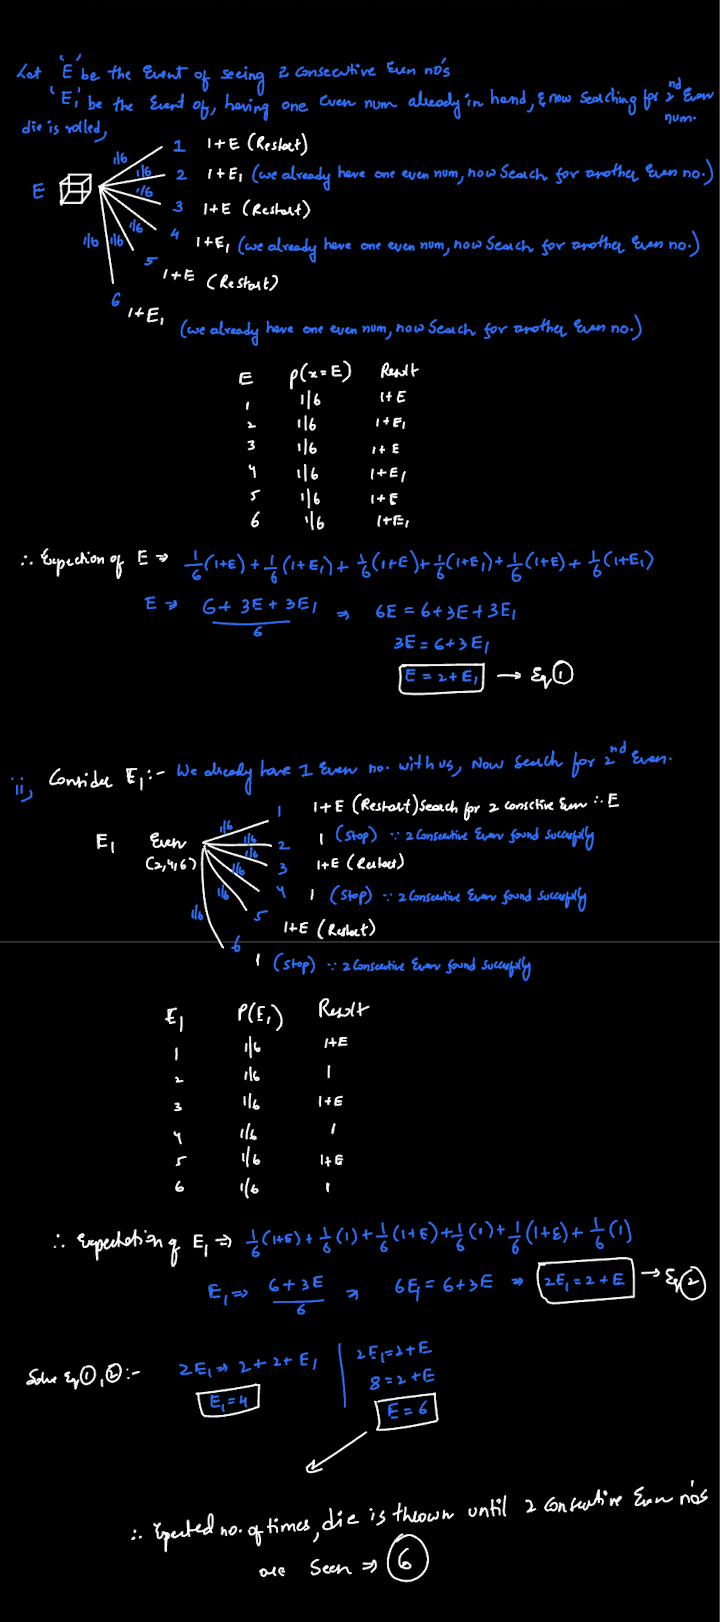 Let 'E' be the Event of seeing 2 consecutive Even no's
'E₁' be the Event of, having one even num already in hand, & now Searching for 2nd Even num.
die is rolled,
E
1/6 1 1+E (Restart)
1/6 2 1+E₁ (we already have one even num, now Search for another Even no.)
1/6 3 1+E (Restart)
1/6 4 1+E₁ (we already have one even num, now Search for another Even no.)
1/6 5 1+E (Restart)
1/6 6 1+E₁ (we already have one even num, now Search for another Even no.)
E P(x=E) Result
1 1/6 1+E
2 1/6 1+E₁
3 1/6 1+E
4 1/6 1+E₁
5 1/6 1+E
6 1/6 1+E₁
∴ Expection of E ⇒ 1/6(1+E) + 1/6(1+E₁) + 1/6(1+E) + 1/6(1+E₁) + 1/6(1+E) + 1/6(1+E₁)
E ⇒ 6+3E+3E₁/6 ⇒ 6E = 6+3E+3E₁
3E = 6+3E₁
E = 2+E₁ → Eq ①
ii, Consider E₁ :- We already have 1 Even no. with us, Now Search for 2nd Even.
E₁ Even (2,4,6)
1/6 1 1+E (Restart) Search for 2 consctive Even ∴ E
1/6 2 1 (Stop) ∵ 2 Consecutive Even found Succesfully
1/6 3 1+E (Restart)
1/6 4 1 (Stop) ∵ 2 Consecutive Even found Succesfully
1/6 5 1+E (Restart)
1/6 6 1 (Stop) ∵ 2 Consecutive Even found Succesfully
E₁ P(E₁) Result
1 1/6 1+E
2 1/6 1
3 1/6 1+E
4 1/6 1
5 1/6 1+E
6 1/6 1
∴ Expectation of E₁ ⇒ 1/6(1+E) + 1/6(1) + 1/6(1+E) + 1/6(1) + 1/6(1+E) + 1/6(1)
E₁ ⇒ 6+3E/6 ⇒ 6E₁ = 6+3E ⇒ 2E₁ = 2+E → Eq ②
Solve Eq ①, ② :- 2E₁ ⇒ 2+2+E₁
E₁ = 4
2E₁ = 2+E
8 = 2+E
E = 6
∴ Expected no. of times, die is thrown until 2 Consecutive Even no's
are Seen ⇒ 6